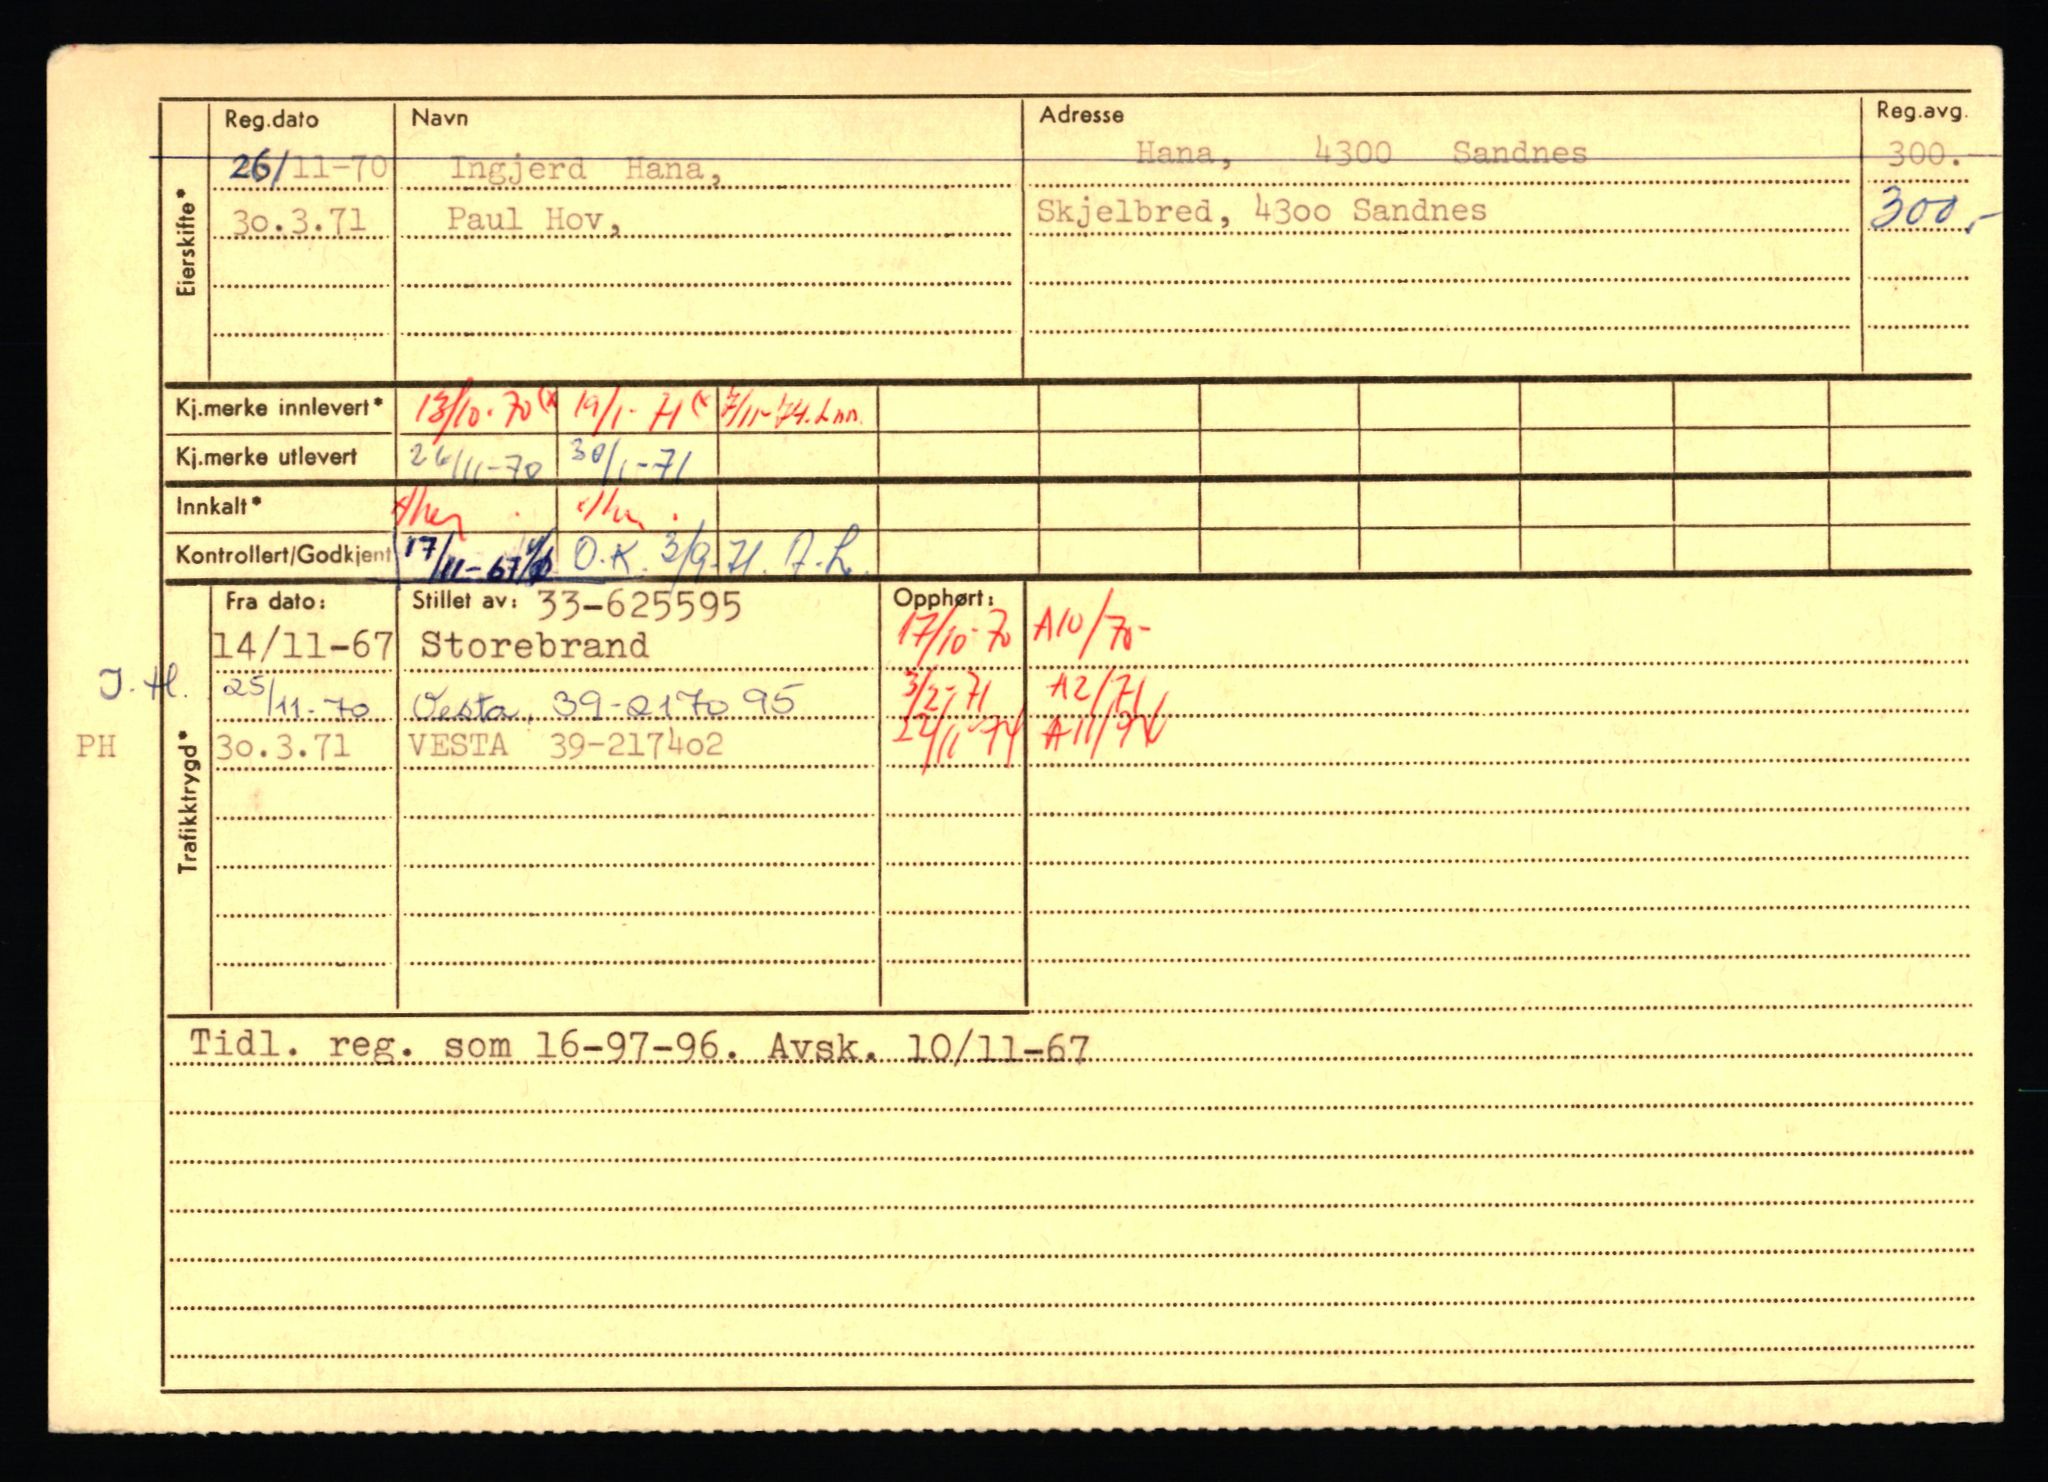 Reg.dato Navn Adresse Reg.avg.
26/11-70 Ingjerd Hana, Hana, 4300 Sandnes 300.-
30.3.71 Paul Hov, Skjelbred, 43oo Sandnes 300,-
Eierskifte*
Kj.merke innlevert* 13/10-70 (x 19/1-71 (x 7/11-74.
Kj.merke utlevert 26/11-70 30/1-71
Innkalt*
Kontrollert/Godkjent 17/11-67 O.K. 3/9-71. A.L.
Fra dato: Stillet av: 33-625595 Opphørt:
14/11-67 Storebrand 17/10-70 A10/70-
J.H. 25/11-70 Vesta, 39-217095 3/2-71 A2/71
PH 30.3.71 VESTA 39-2174o2 22/11-74 A11/74
Trafikktrygd*
Tidl. reg. som 16-97-96. Avsk. 10/11-67